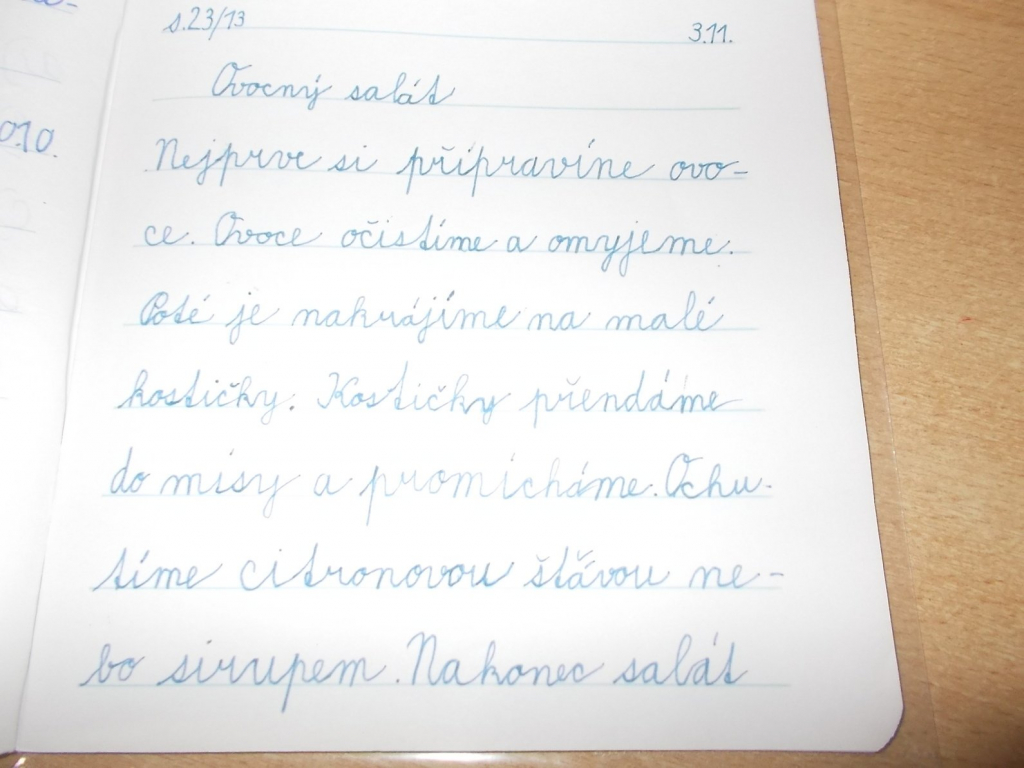 s.23/13 3.11.
Ovocný salát
Nejprve si přípravíne ovo-
ce. Ovoce očistíme a omyjeme.
Poté je nakrájíme na malé
kostičky. Kostičky přendáme
do mísy a promícháme. Ochu-
tíme citronovou šťávou ne-
bo sirupem. Nakonec salát
010.